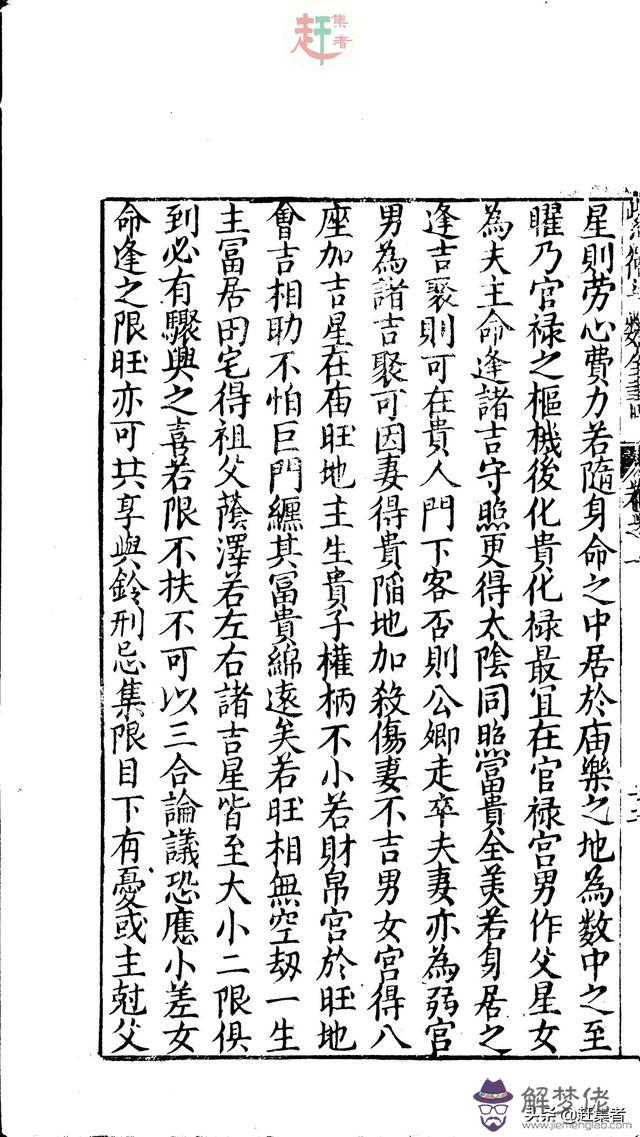 赶集者
數全書
卷之一
十二
星則劳心費力若隨身命之中居於庙樂之地為数中之至
曜乃官禄之樞機後化貴化禄最宜在官禄宫男作父星女
為夫主命逢諸吉守照更得太陰同照富貴全美若身居之
逢吉聚則可在貴人門下客否則公卿走卒夫妻亦為弱宫
男為諸吉聚可因妻得貴陥地加殺傷妻不吉男女宫得八
座加吉星在庙旺地主生貴子權柄不小若財帛宫於旺地
會吉相助不怕巨門纏其富貴綿遠矣若旺相無空刼一生
主冨居田宅得祖父蔭澤若左右諸吉星皆至大小二限俱
到必有驟興之喜若限不扶不可以三合論議恐應小差女
命逢之限旺亦可共享與鈴刑忌集限目下有憂或主尅父
解梦佬
www.jiemenglao.com
头条@赶集者